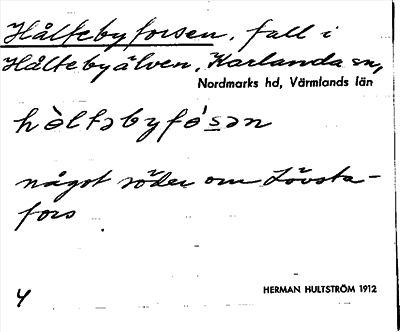 Håltebyforsen, fall i
Håltebyälven, Karlanda sn,
Nordmarks hd, Värmlands län
hòltəbyfo̍s̲ən
något söder om Lövsta-
fors
4
HERMAN HULTSTRÖM 1912